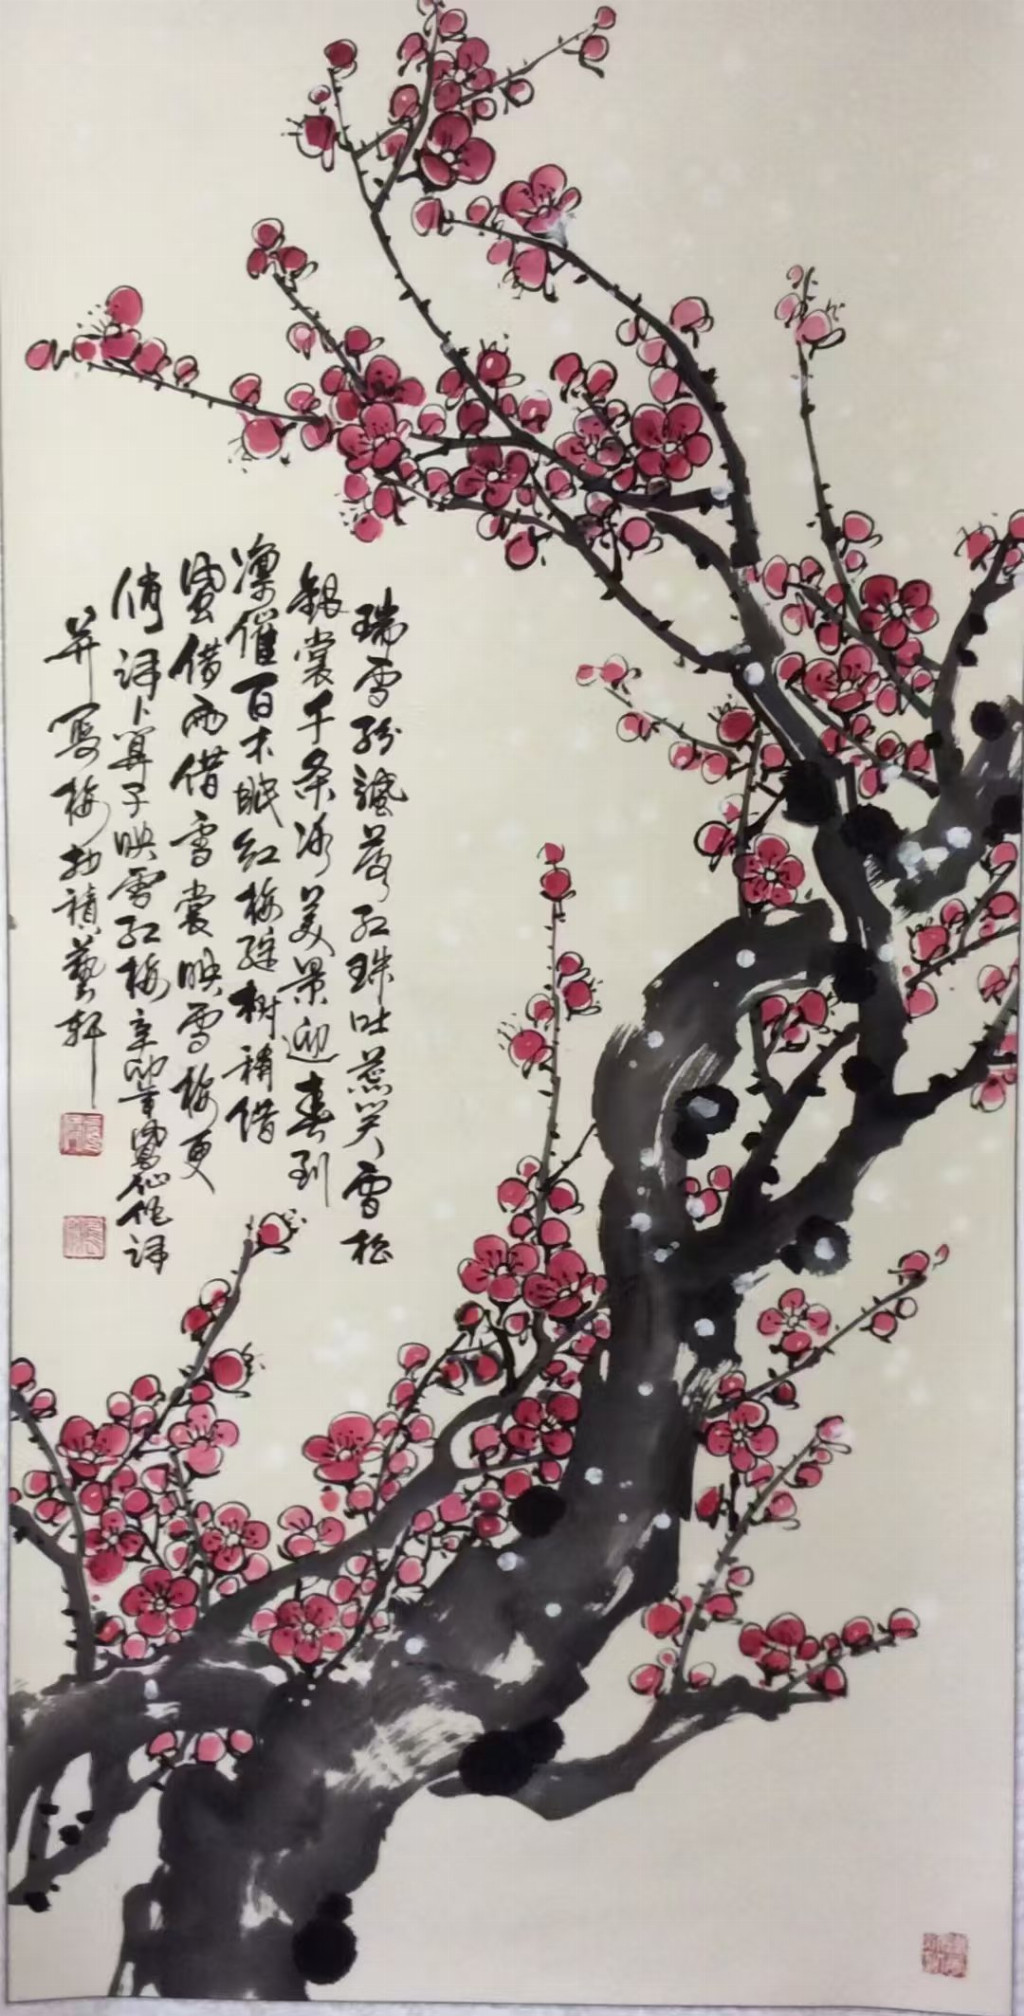 瑞雪纷飞落红珠吐蕊笑雪松
银裳千条冰美景迎春到
凛催百木眠红梅缀树稍借
风借雨借雪裳映雪梅更
俏 词卜算子映雪红梅 辛卯年 仙作词
并写梅于 积艺轩